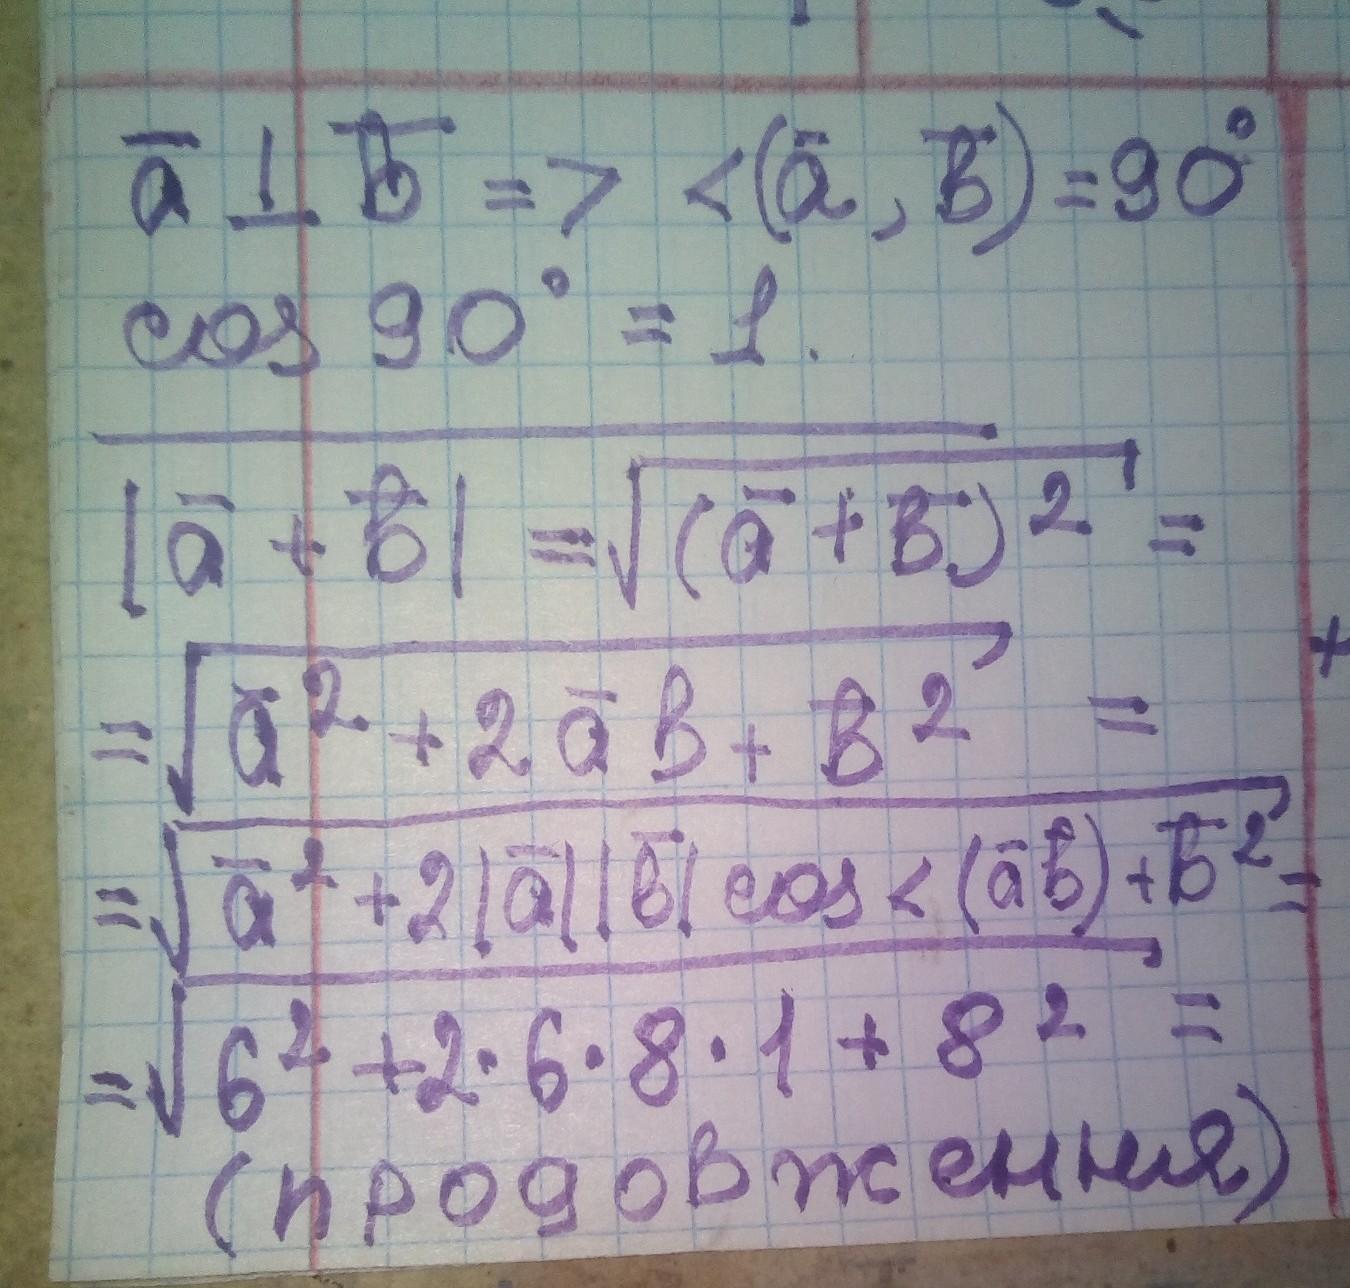 a̅ ⊥ b̅ => <(a̅, b̅) = 90°
cos 90° = 1.
|a̅ + b̅| = √(a̅ + b̅)² =
= √a̅² + 2a̅b + b̅² =
= √a̅² + 2|a̅||b̅| cos <(a̅b̅) + b̅² =
= √6² + 2·6·8·1 + 8² =
(продовження)